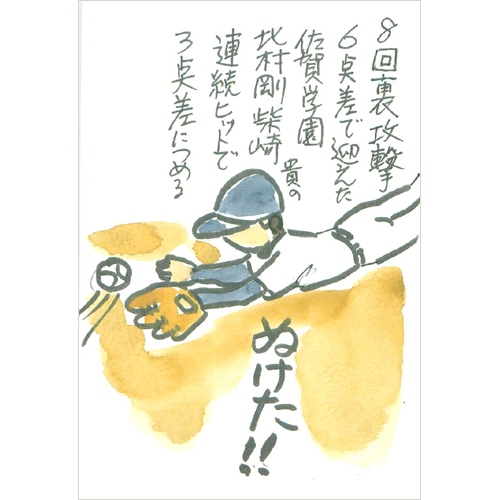 8回裏攻撃
6点差で迎えた
佐賀学園
北村剛柴崎貴の
連続ヒットで
3点差につめる
ぬけた!!